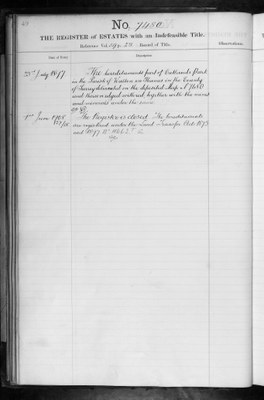 No. 7480
THE REGISTER of ESTATES with an Indefeasible Title.
Reference Vol. Record of Title.
Date of Entry. Description. Observations.
25th July 1877 The hereditaments part of Oatlands Park
in the Parish of Walton on Thames in the County
of Surrey delineated on the deposited Map No 7480
and thereon edged with red together with the mines
and minerals under the same
1st June 1905 The Register is closed. The hereditaments
are registered under the Land Transfer Act 1875
and 1897